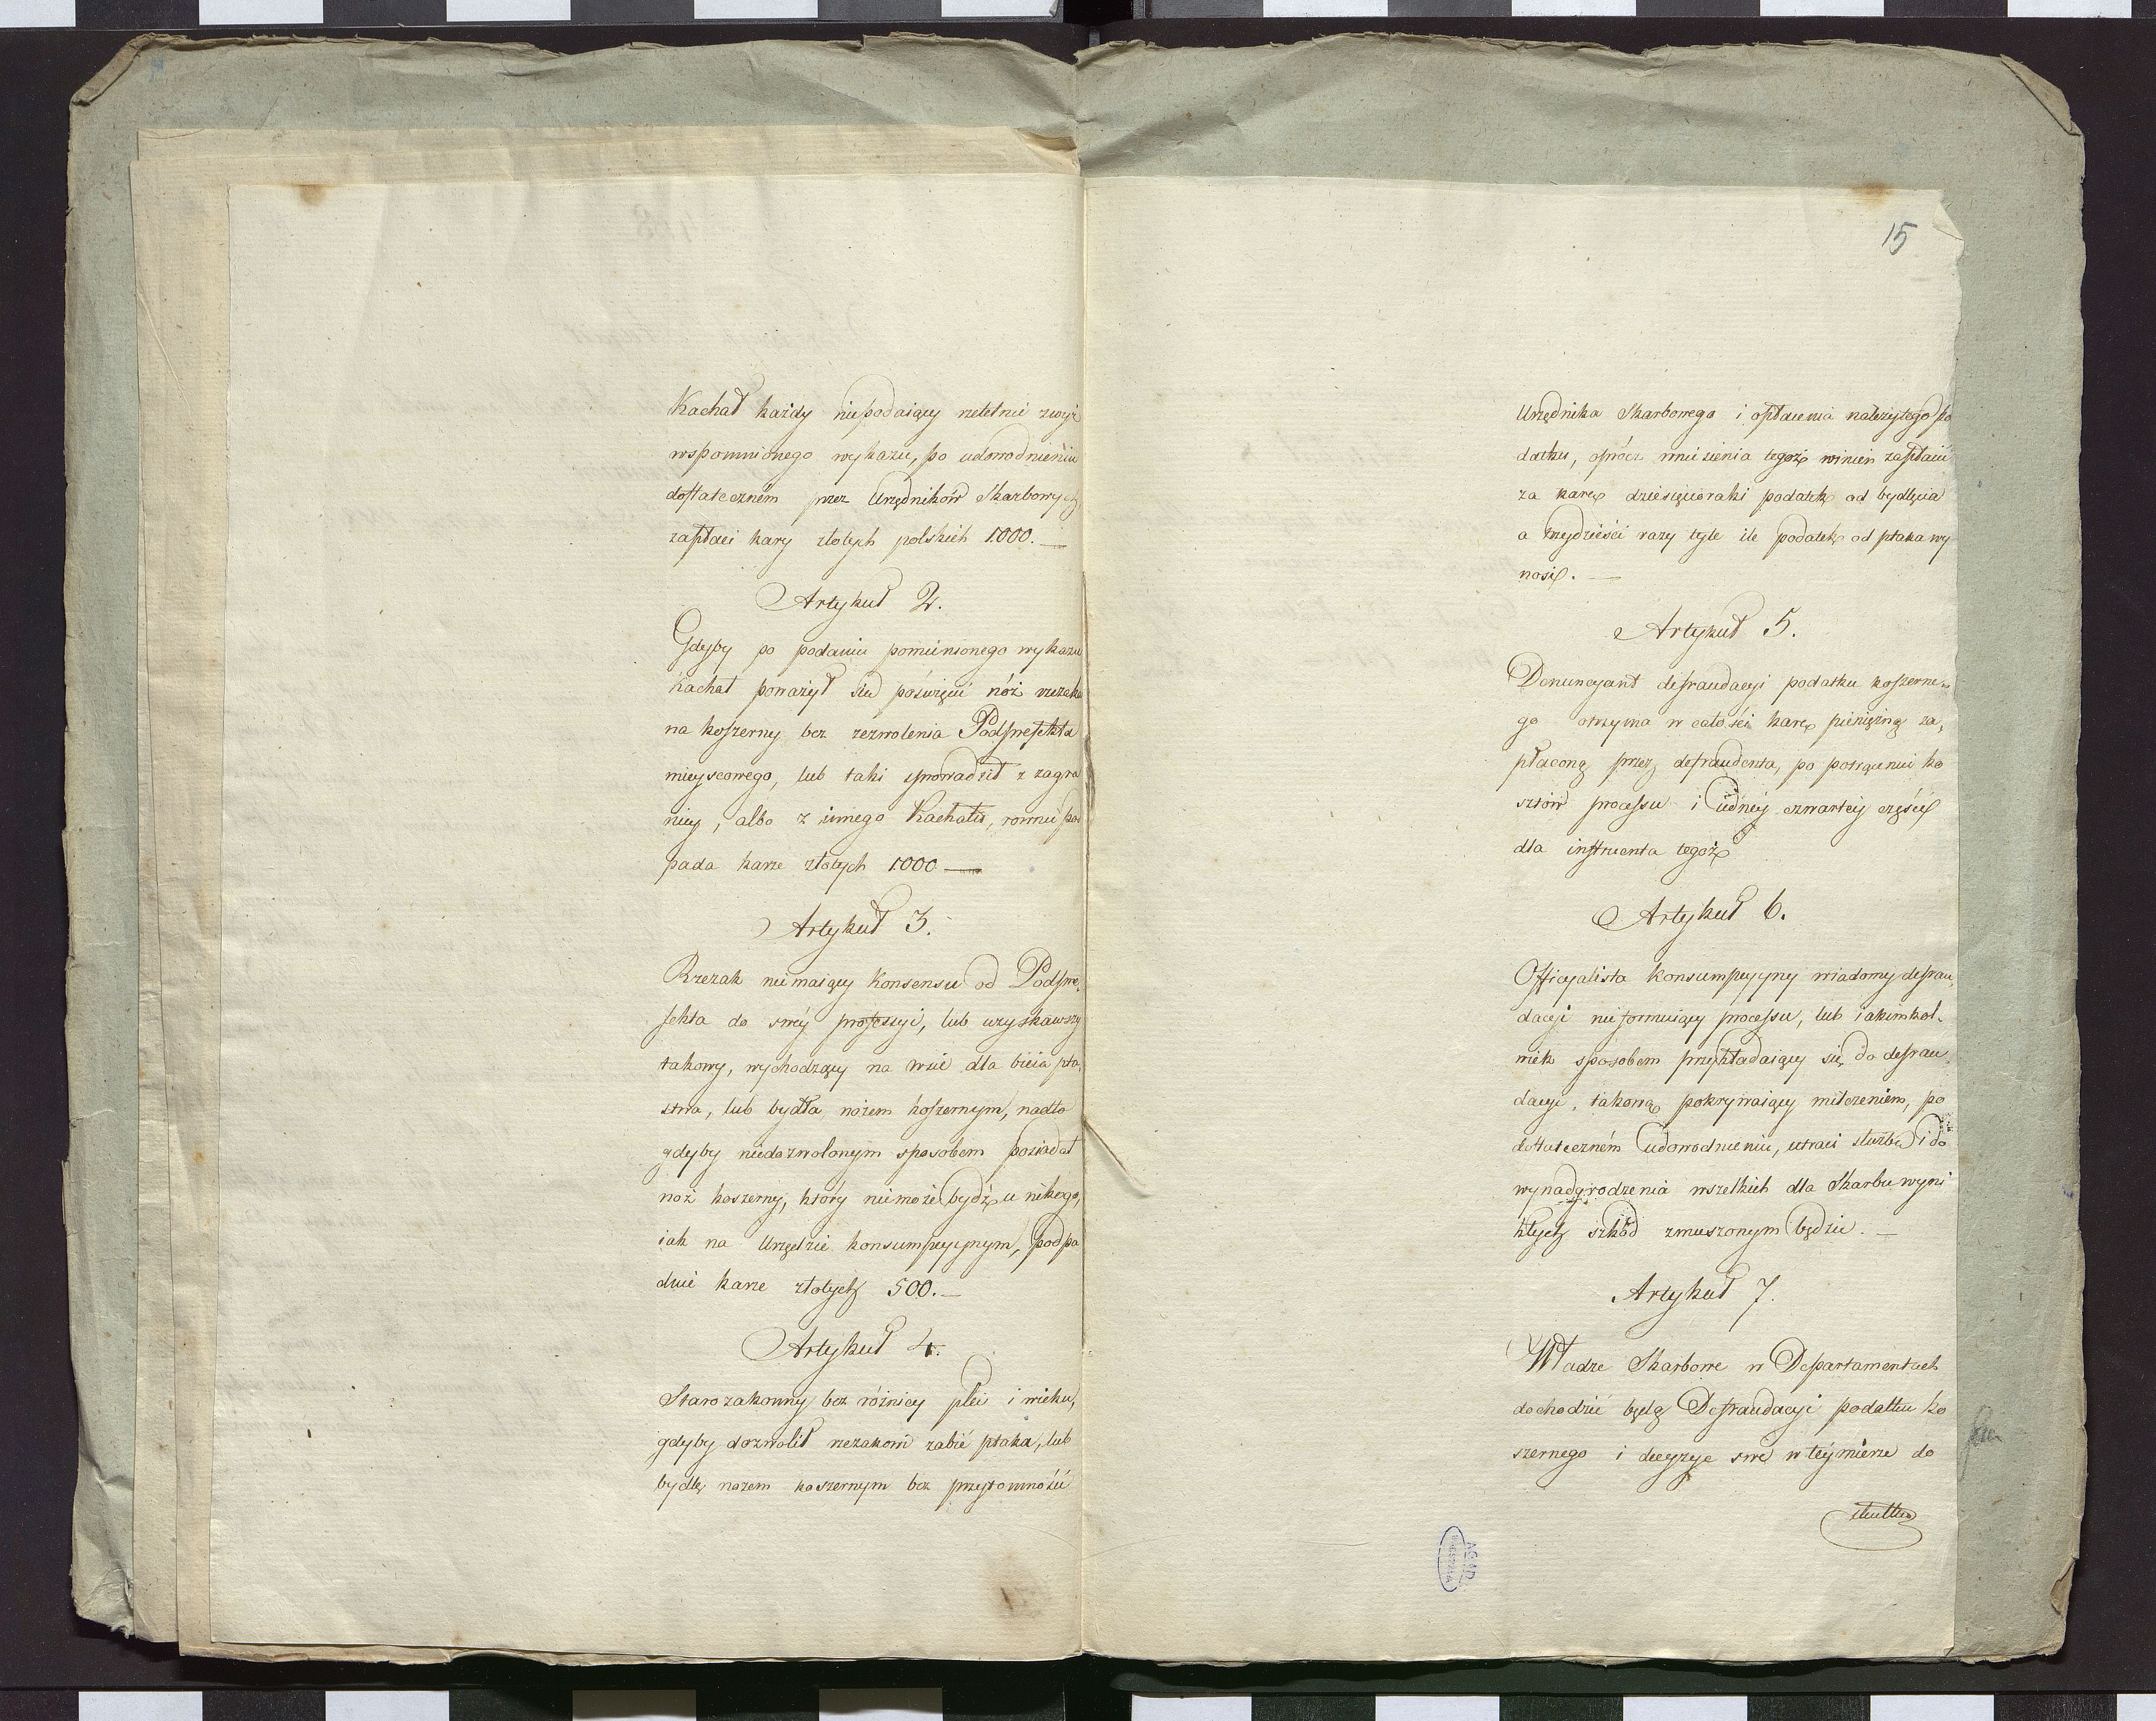 Kachał każdy niepodaiący rzetelnie zwyż
wspomnionego wykazu, po udowodnieniu
dostateczném przez Urzędników Skarbowych,
zapłaci kary złotych polskich 1000. —
Artykuł 2.
Gdyby po podaniu pomienionego wykazu
Kachał poważył sie poświęcić nóż rzezaka
na koszerny bez zezwolenia Podprefekta
mieyscowego, lub taki sprowadził z zagra
nicy, albo z innego Kachału, rownie pod
pada karze złotych 1000 —
Artykuł 3.
Rzezak nie maiący Konsensu od Podpre,
fekta do swéy professyi, lub uzyskawszy
takowy, wychodzący na wsie dla bicia pta,
stwa, lub bydła nożem koszernym, nadto
gdyby niedozwolonym sposobem posiadał
noż koszerny, który nie może bydź u nikogo,
iak na Urzędzie konsumpcyjnym, podpa
dnie karze złotych 500. —
Artykuł 4.
Starozakonny bez różnicy płci i wieku,
gdyby dozwolił rzezakowi zabić ptaka, lub
bydlę nożem koszernym bez przytomności
15
Urzędnika Skarbowego i opłacenia należytego po
datku, oprócz uniesienia tegoż winien zapłacić
za karę dziesięcioraki podatek od bydlęcia
a trzydzieści razy tyle ile podatek od ptaka wy
nosi. —
Artykuł 5.
Denuncyant defraudacyi podatku koszerne,
go otrzyma w całości karę pieniężną za,
płaconą przez defraudanta, po potrąceniu ko
sztów processu i iednéy czwartéy części
dla instruenta tegoż
Artykuł 6.
Officyalista konsumpcyjny wiadomy defrau,
dacyi nie formuiący processu, lub iakimkol,
wiek sposobem przykładaiący się do defrau,
dacyi, takową pokrywaiący milczeniem, po
dostateczném udowodnieniu, utraci służbę i do
wynadgrodzenia wszelkich dla Skarbu wyni
kłych szkód zmuszonym będzie. —
Artykuł 7.
Władze Skarbowe w Departamentach
dochodzić będą Defraudacyi podatku ko
szernego i decyzye swe w téy mierze do
skutku
AGAD